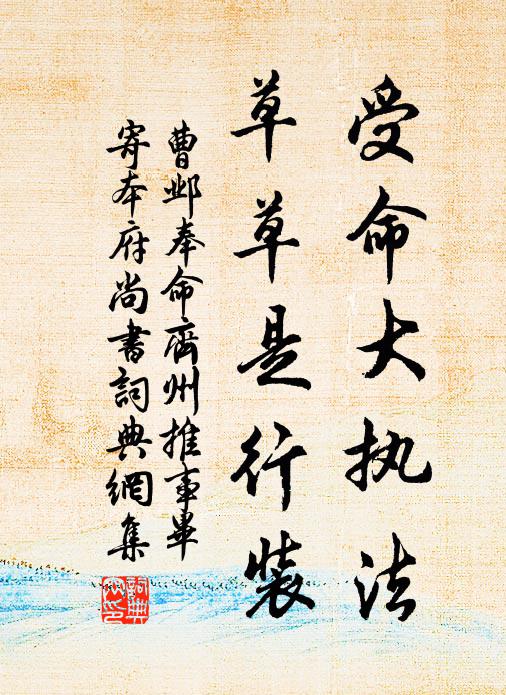 受命大执法
草草是行装
曹邺奉命齊州推事畢
寄本府尚書詞典網集